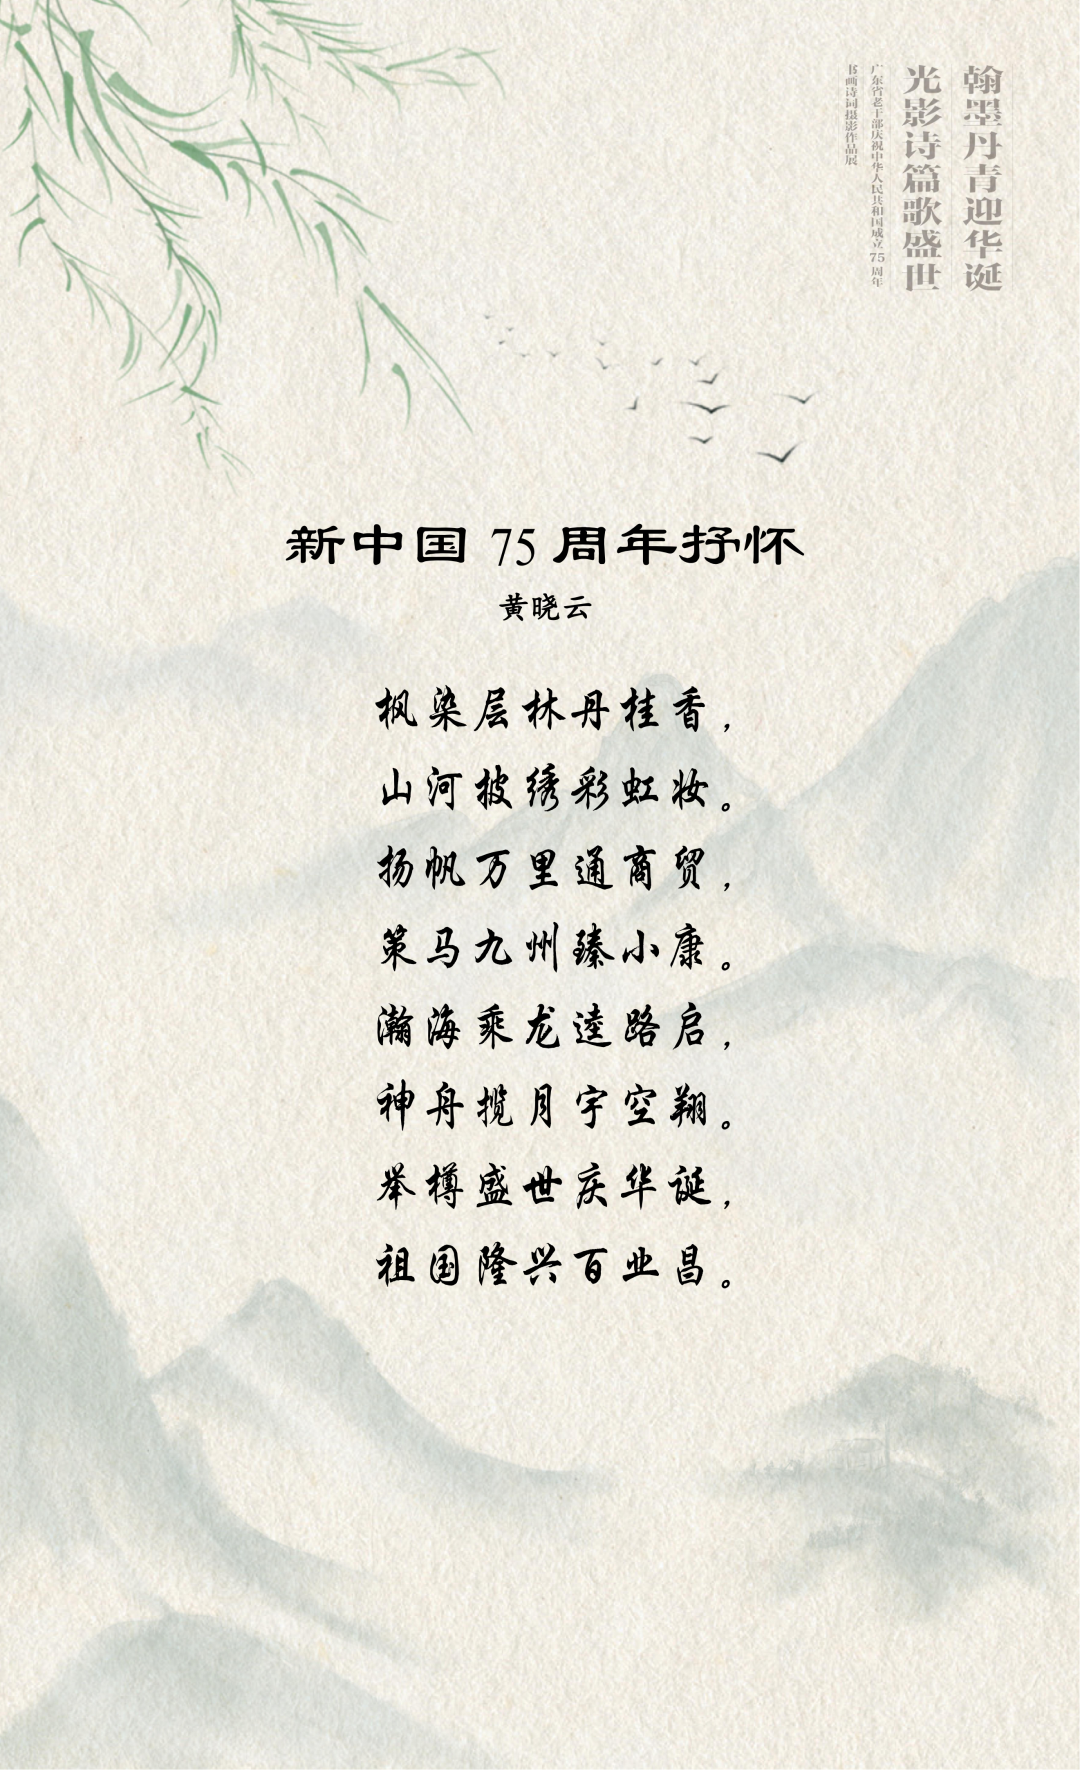 翰墨丹青迎华诞
光影诗篇歌盛世
广东省老干部庆祝中华人民共和国成立75周年
书画诗词摄影作品展
新中国 75 周年抒怀
黄晓云
枫染层林丹桂香，
山河披绣彩虹妆。
扬帆万里通商贸，
策马九州臻小康。
瀚海乘龙逵路启，
神舟揽月宇空翔。
举樽盛世庆华诞，
祖国隆兴百业昌。